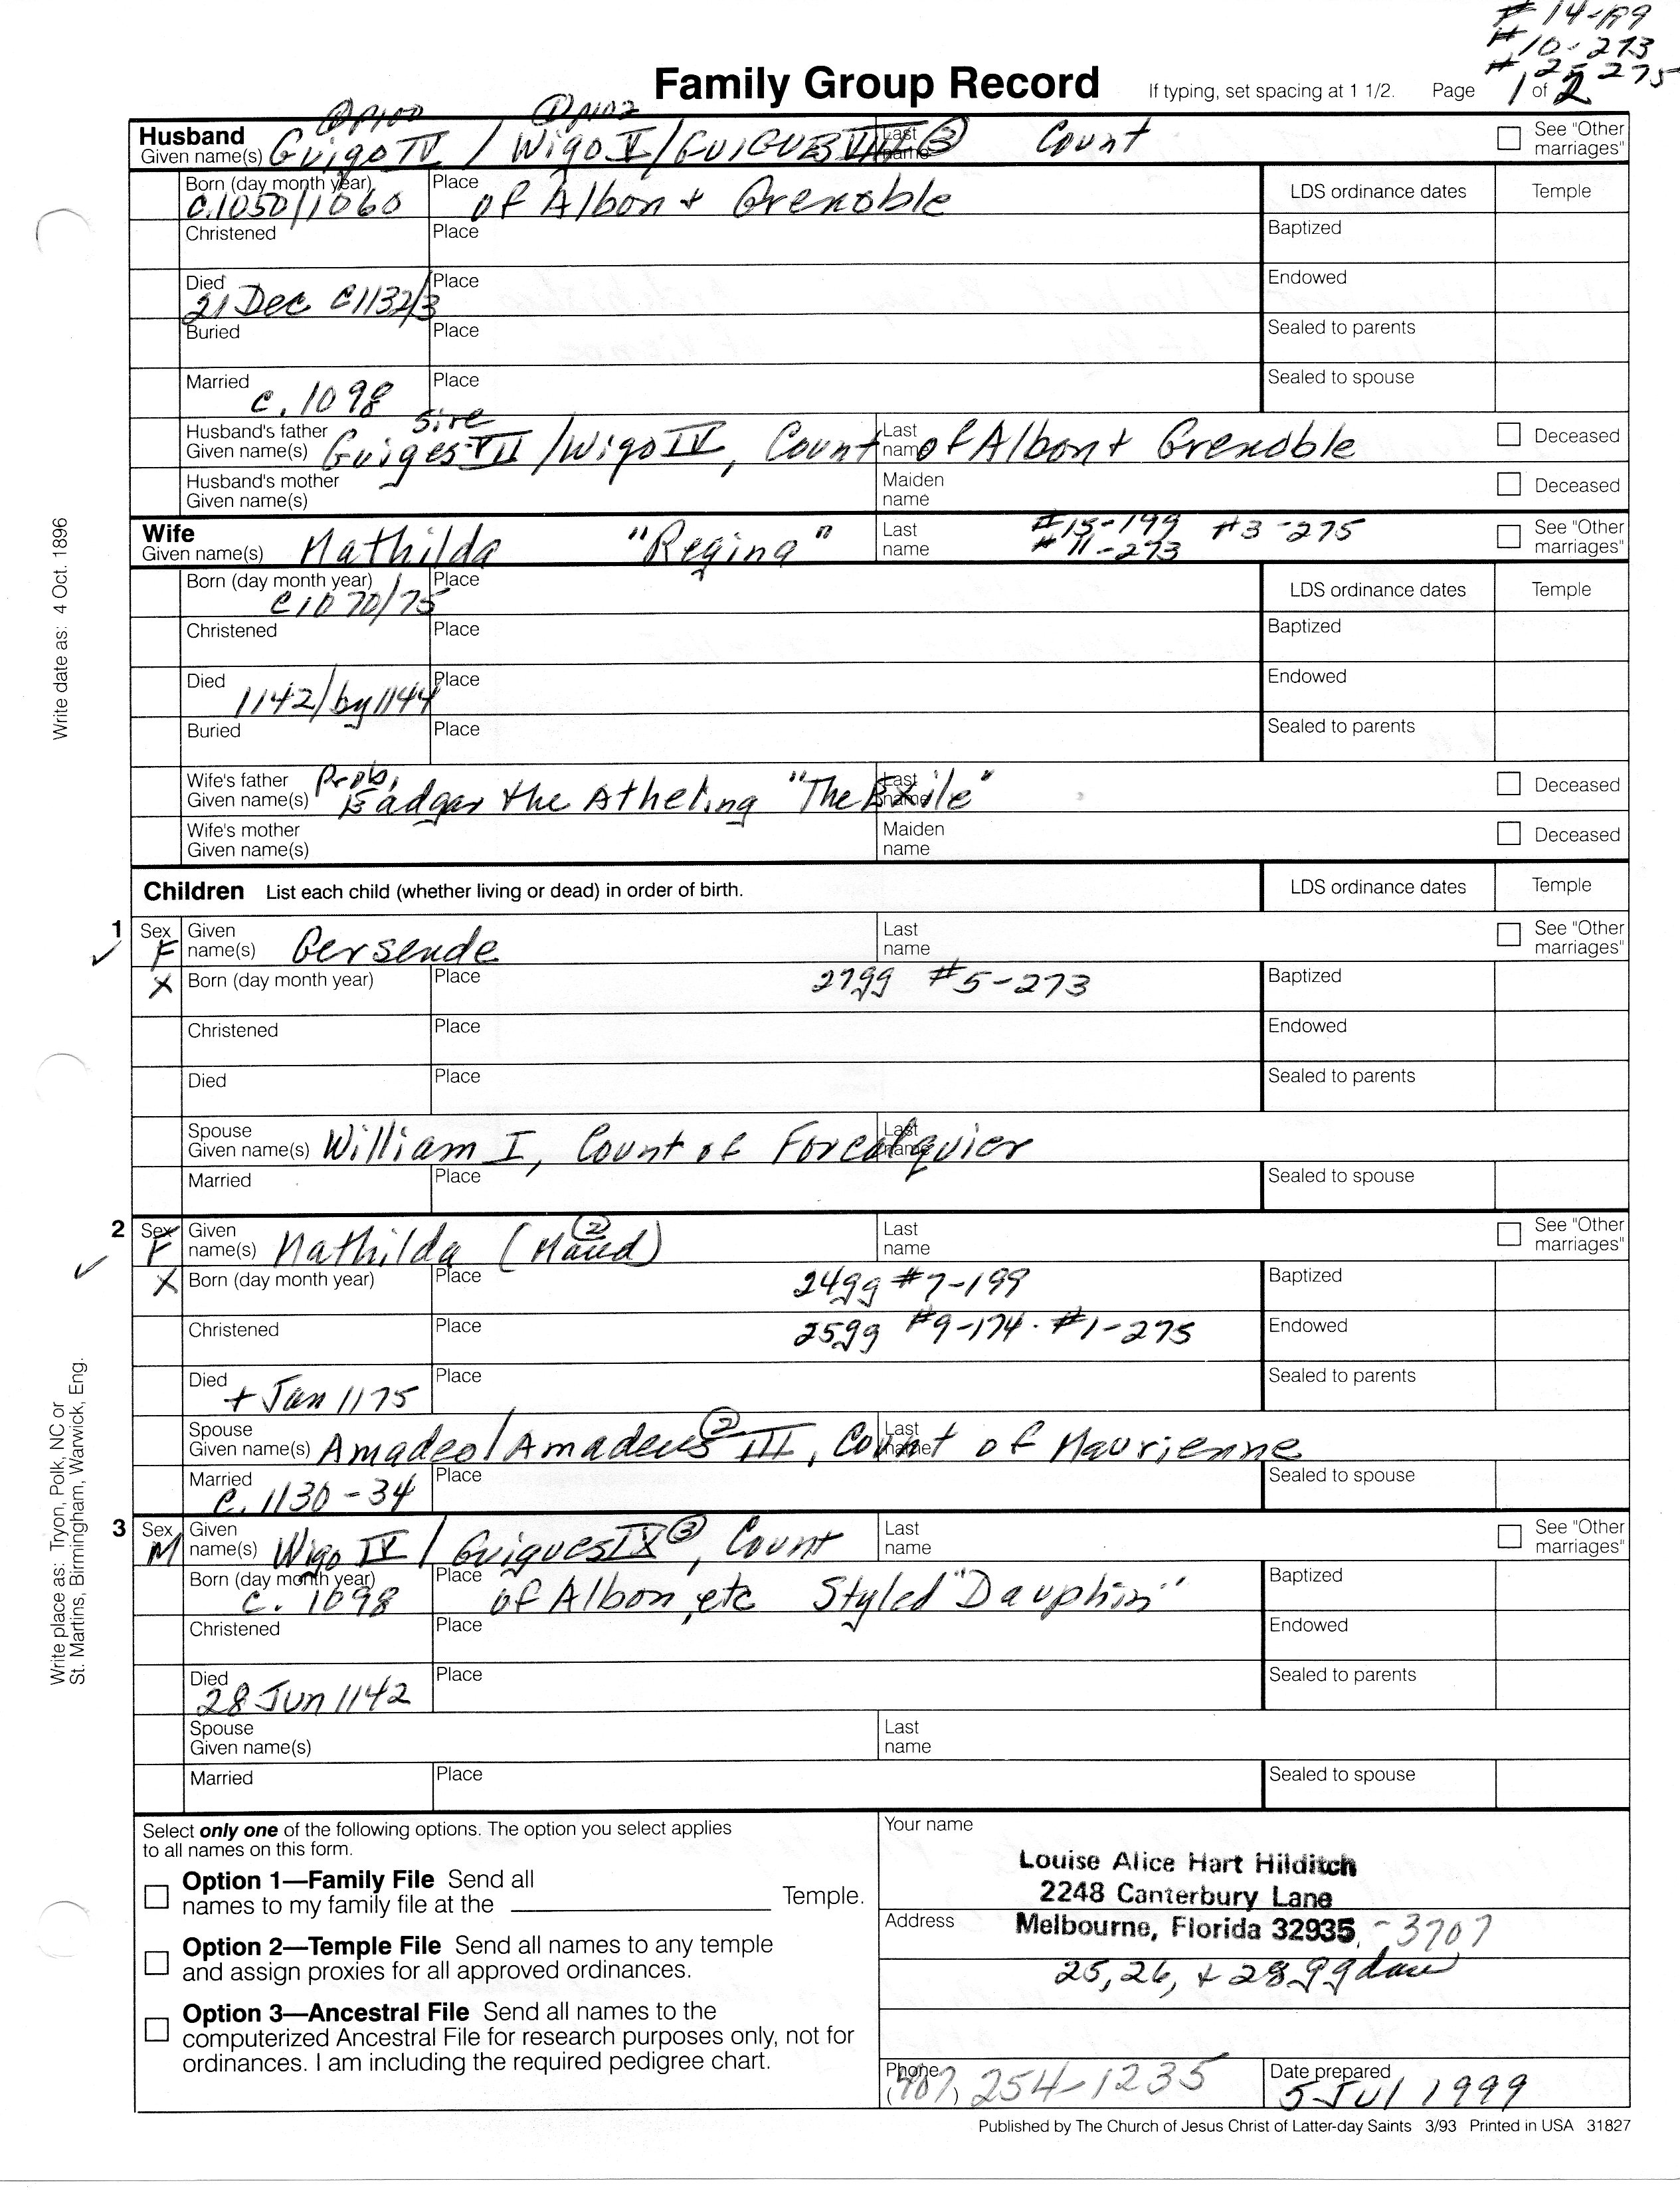 # 14-199
# 10-273
# 25-275
Family Group Record If typing, set spacing at 1 1/2. Page 1 of 2
① p100 ② p102
Husband
Given name(s) Guigo IV / Wigo I / GUIGUES VIII ③ Last name Count See "Other marriages"
Born (day month year) c.1050/1060 Place of Albon + Grenoble LDS ordinance dates Temple
Christened Place Baptized
Died 21 Dec c1132/3 Place Endowed
Buried Place Sealed to parents
Married c. 1098 Place Sealed to spouse
Sire
Husband's father Given name(s) Guiges VII / Wigo IV, Count Last name of Albon + Grenoble Deceased
Husband's mother Given name(s) Maiden name Deceased
Wife
Given name(s) Mathilda "Regina" Last name #15-199 #3-275 See "Other marriages"
#11-273
Born (day month year) c1070/75 Place LDS ordinance dates Temple
Christened Place Baptized
Died 1142/by1144 Place Endowed
Buried Place Sealed to parents
Wife's father Given name(s) Prob. Eadgar the Atheling "The Exile" Last name Deceased
Wife's mother Given name(s) Maiden name Deceased
Children List each child (whether living or dead) in order of birth. LDS ordinance dates Temple
1 Sex F Given name(s) Gersende Last name See "Other marriages"
X Born (day month year) Place 27gg #5-273 Baptized
Christened Place Endowed
Died Place Sealed to parents
Spouse Given name(s) William I, Count of Forcalquier Last name
Married Place Sealed to spouse
2 Sex F Given name(s) Mathilda (Maud) ② Last name See "Other marriages"
X Born (day month year) Place 24gg #7-199 Baptized
Christened Place 25gg #9-174 · #1-275 Endowed
Died + Jan 1175 Place Sealed to parents
Spouse Given name(s) Amadeo/Amadeus ② III, Count of Maurienne Last name
Married c. 1130-34 Place Sealed to spouse
3 Sex M Given name(s) Wigo IV / Guigues IX ③, Count Last name See "Other marriages"
Born (day month year) c. 1098 Place of Albon, etc Styled "Dauphin" Baptized
Christened Place Endowed
Died 28 Jun 1142 Place Sealed to parents
Spouse Given name(s) Last name
Married Place Sealed to spouse
Select only one of the following options. The option you select applies
to all names on this form.
Option 1—Family File Send all
names to my family file at the Temple.
Option 2—Temple File Send all names to any temple
and assign proxies for all approved ordinances.
Option 3—Ancestral File Send all names to the
computerized Ancestral File for research purposes only, not for
ordinances. I am including the required pedigree chart.
Your name
Louise Alice Hart Hilditch
2248 Canterbury Lane
Address Melbourne, Florida 32935 -3707
25, 26, + 28 gg dau
Phone (407) 254-1235 Date prepared 5 Jul 1999
Published by The Church of Jesus Christ of Latter-day Saints 3/93 Printed in USA 31827
Write date as: 4 Oct. 1896
Write place as: Tryon, Polk, NC or
St. Martins, Birmingham, Warwick, Eng.